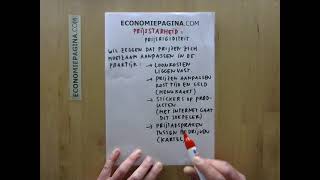 ECONOMIEPAGINA.COM
ECONOMIEPAGINA.COM
PRIJSSTARHEID =
PRIJSRIGIDITEIT
WIL ZEGGEN DAT PRIJZEN ZICH
MOEIZAAM AANPASSEN IN DE
PRAKTIJK: → LOONKOSTEN
LIGGEN VAST
→ PRIJZEN AANPASSEN
KOST TIJD EN GELD
(MENUKAART)
→ STICKERS OP PROD-
UCTEN
(MET INTERNET GAAT
DIT SOEPELER)
→ PRIJSAFSPRAKEN
TUSSEN BEDRIJVEN
(KARTEL)